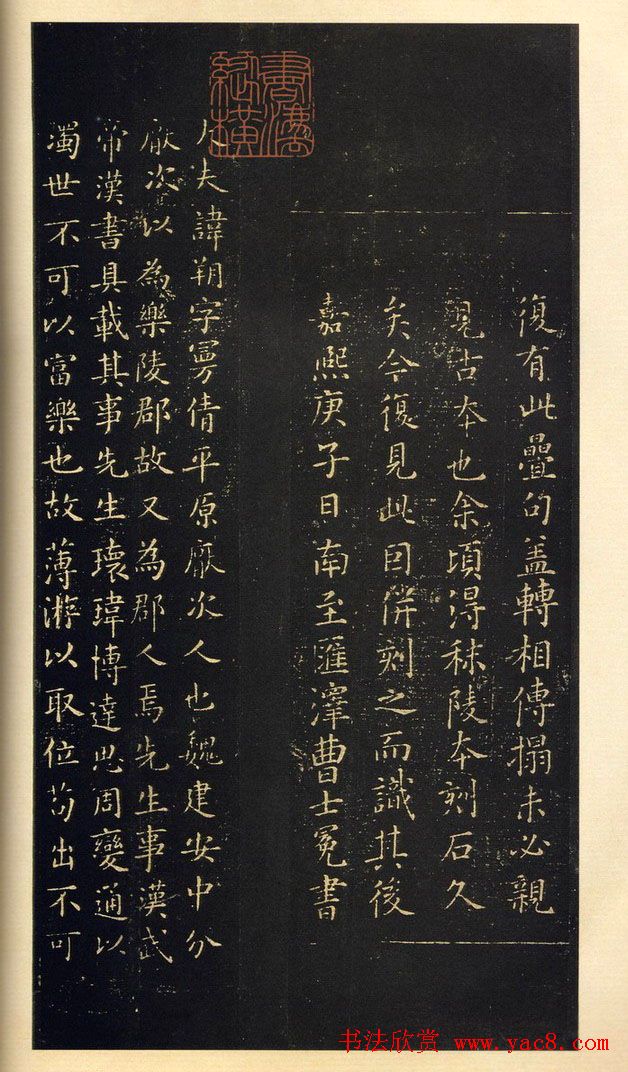 復有此疊句蓋轉相傳搨未必親
見古本也余頃得秣陵本刻石久
矣今復見此因併刻之而識其後
嘉熙庚子日南至匯澤曹士冕書
書法縱橫
大夫諱朔字曼倩平原厭次人也魏建安中分
厭次以為樂陵郡故又為郡人焉先生事漢武
帝漢書具載其事先生瓌瑋博達思周變通以
濁世不可以富樂也故薄遊以取位苟出不可
书法欣赏 www.yac8.com